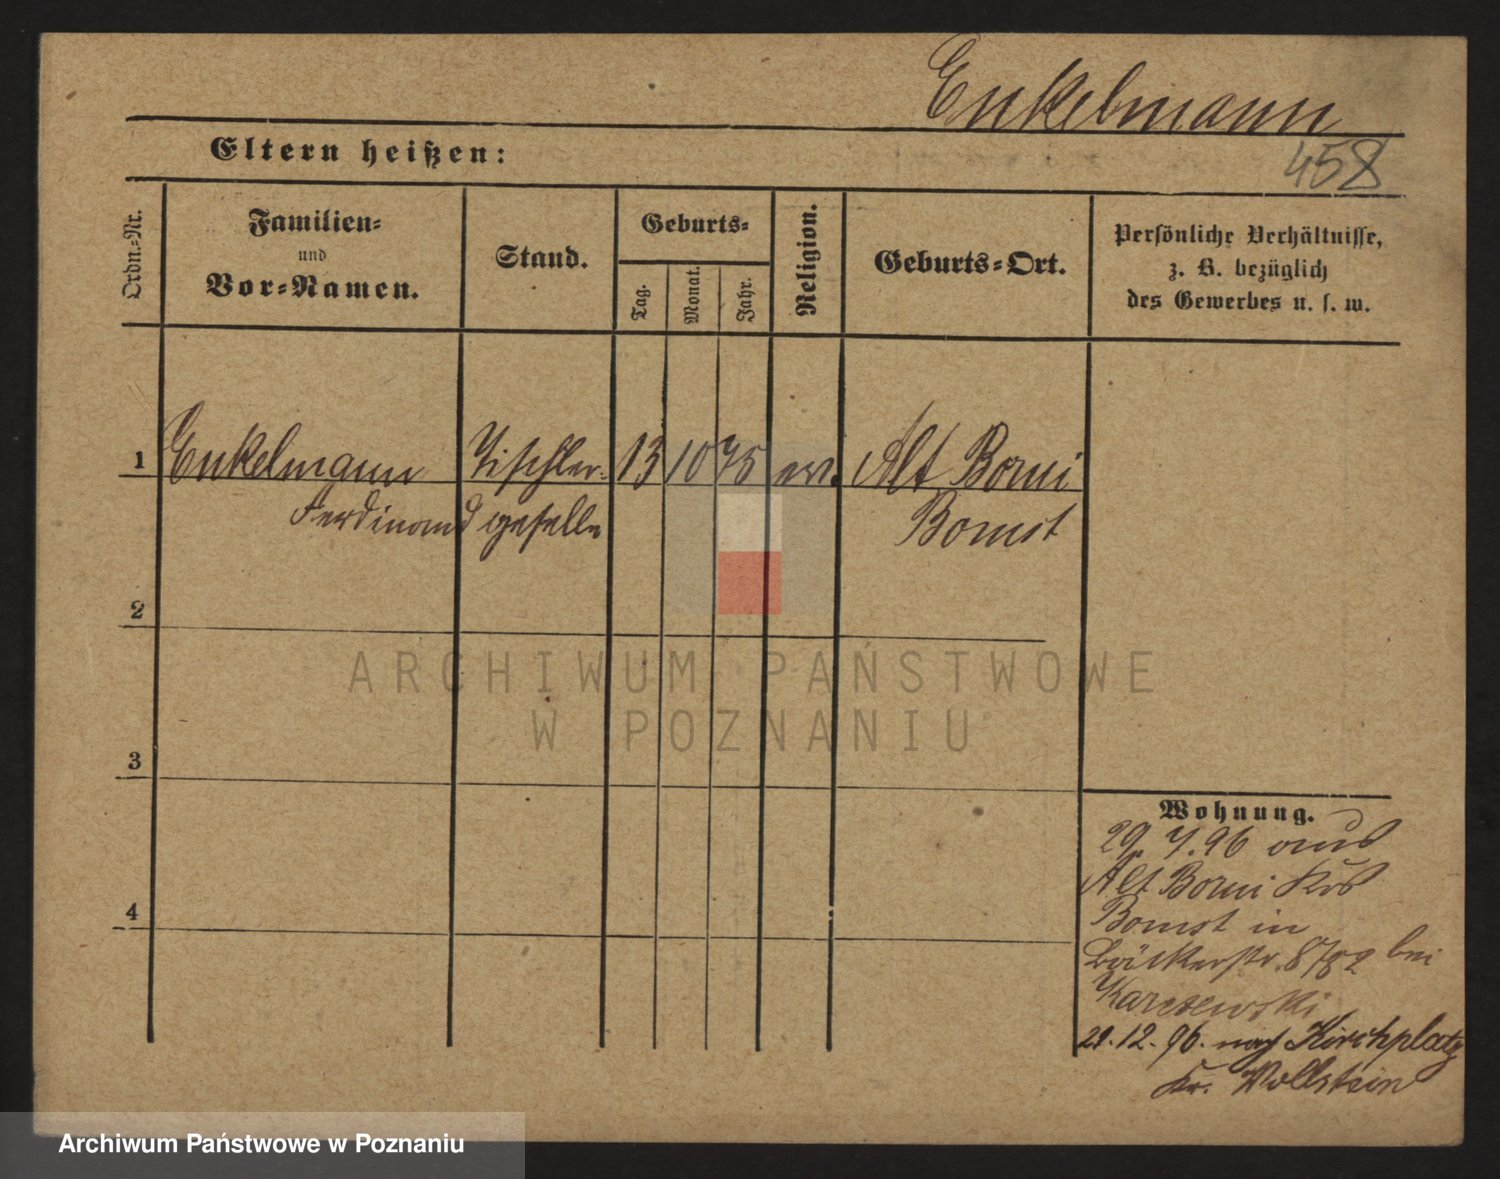 Enkelmann
458
Eltern heißen:
Ordn.=Nr.
Familien=
und
Vor=Namen.
Stand.
Geburts=
Tag.
Monat.
Jahr.
Religion.
Geburts=Ort.
Persönliche Verhältnisse,
z. B. bezüglich
des Gewerbes u. s. w.
1 Enkelmann Tischler= 13 10 75 ev. Alt Borui
Ferdinand geselle Bomst
2
3
4
Wohnung.
29. 7. 96 aus
Alt Borui Krs
Bomst in
Bäckerstr. bei
29. 12. 96. nach Kirchplatz
Kr. Wollstein
ARCHIWUM PAŃSTWOWE
W POZNANIU
Archiwum Państwowe w Poznaniu